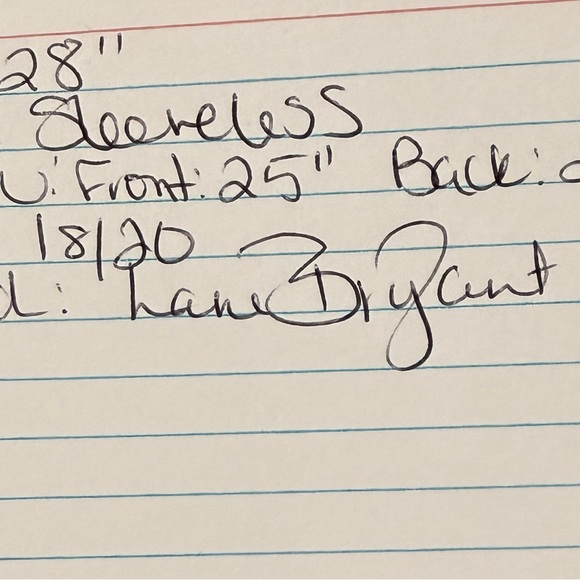 28"
Sleeveless
Front: 25" Back:
18/20
Lane Bryant